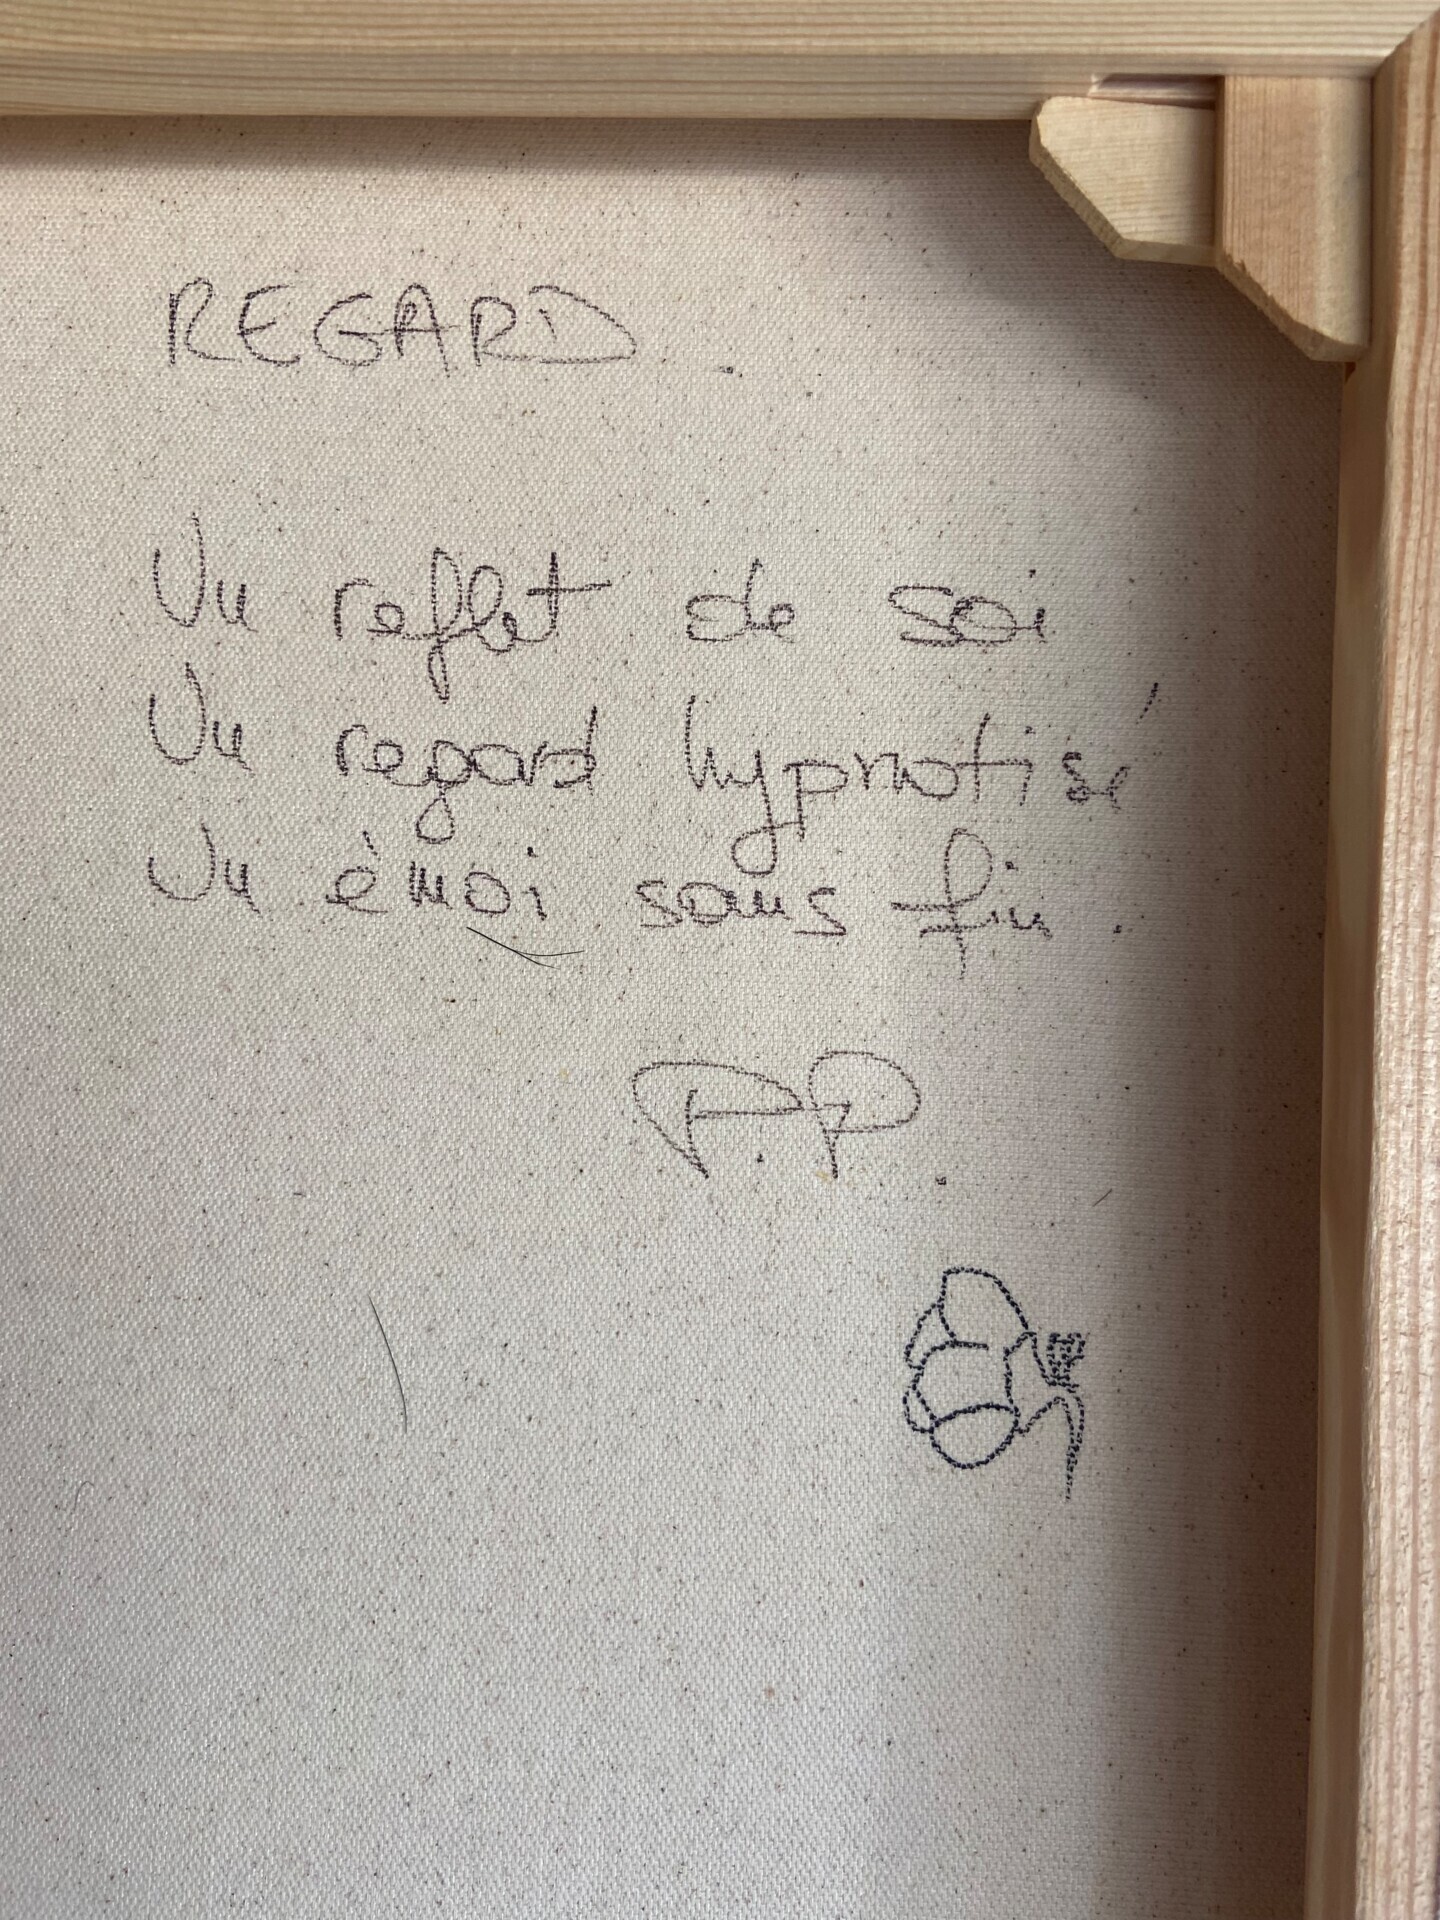 REGARD.
Un reflet de soi
Un regard hypnotisé
Un émoi sans fin.
P.P.